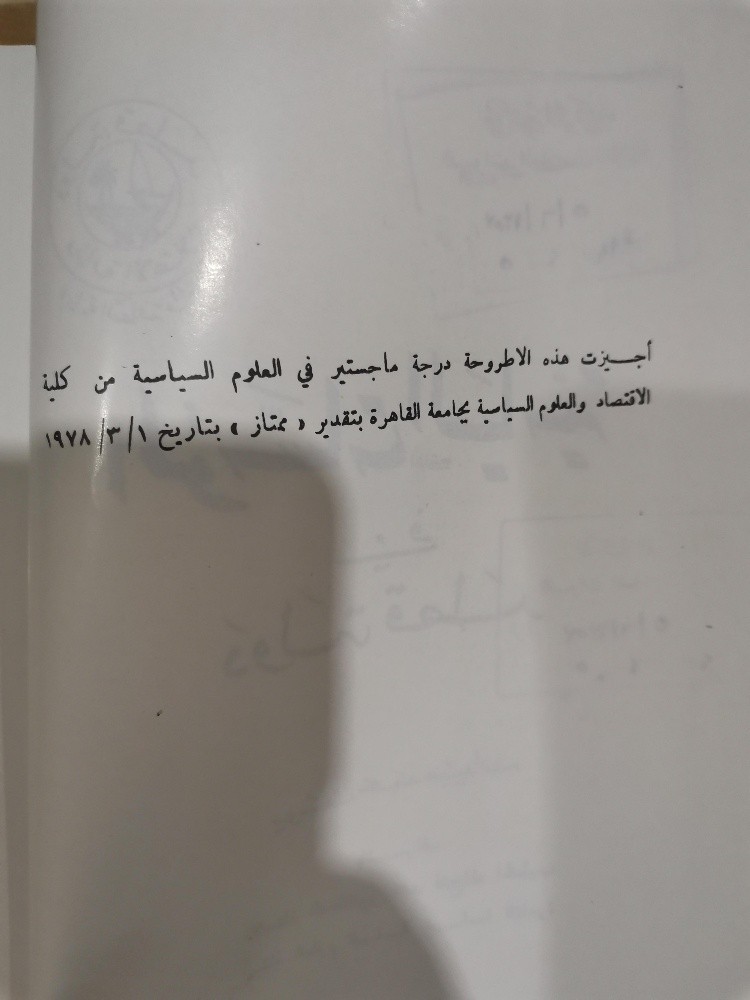 أجـــيزت هذه الاطروحة درجة ماجستير في العلوم السياسية من كلية
الاقتصاد والعلوم السياسية بجامعة القاهرة بتقدير « ممتاز » بتاريخ ١/ ٣/ ١٩٧٨